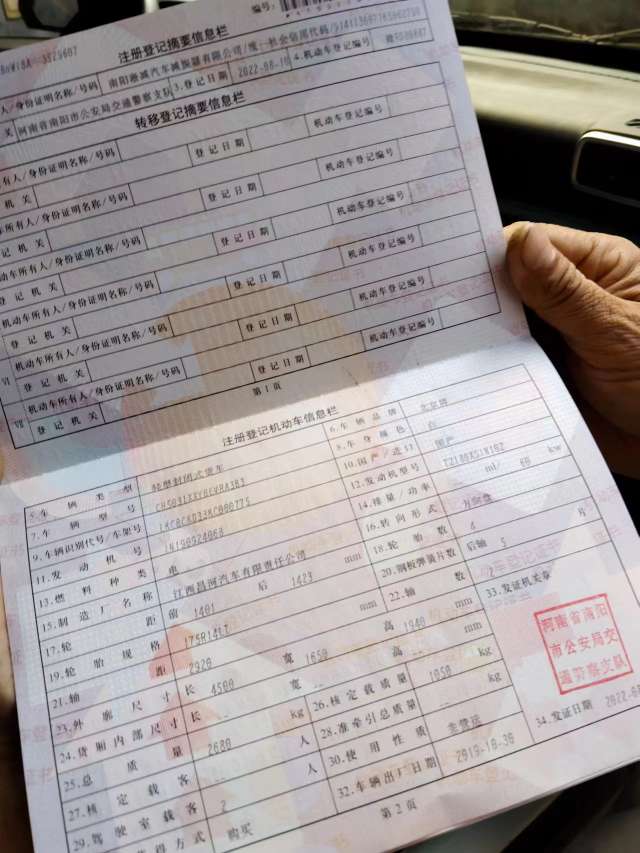 编号:
注册登记摘要信息栏
人/身份证明名称/号码 南阳淅减汽车减振器有限公司/统一社会信用代码/
关 河南省南阳市公安局交通警察支队 3.登记日期 2022-08- 4.机动车登记编号
转移登记摘要信息栏
所有人/身份证明名称/号码
机关 登记日期 机动车登记编号
车所有人/身份证明名称/号码
记机关 登记日期 机动车登记编号
动车所有人/身份证明名称/号码
登记机关 登记日期 机动车登记编号
机动车所有人/身份证明名称/号码
登记机关 登记日期 机动车登记编号
VI 机动车所有人/身份证明名称/号码
登记机关 登记日期 机动车登记编号
VII 机动车所有人/身份证明名称/号码
登记机关 登记日期 机动车登记编号
第1页
注册登记机动车信息栏
5.车辆类型 轻型封闭式货车 6.车辆品牌 北京牌
7.车辆型号 8.车身颜色 白
9.车辆识别代号/车架号 10.国产/进口 国产
11.发动机号 12.发动机型号 TZ180XSIN102
13.燃料种类 电 14.排量/功率 ml/ 60 kw
15.制造厂名称 江西昌河汽车有限责任公司 16.转向形式 方向盘
17.轮距 前 1401 后 1423 mm 18.轮胎数 4
19.轮胎规格 175R14LT 20.钢板弹簧片数 后轴 5 片
21.轴距 2920 mm 22.轴数
23.外廓尺寸 长 4500 宽 1650 高 1940 mm 33.发证机关章
24.货厢内部尺寸 长 -- 宽 -- 高 -- mm
25.总质量 2600 kg 26.核定载质量 1050 kg
27.核定载客 -- 人 28.准牵引总质量 -- kg
29.驾驶室载客 2 人 30.使用性质 非营运
得方式 购买 32.车辆出厂日期 2019-10-30
河南省南阳
市公安局交
通警察支队
34.发证日期 2022-0
第2页